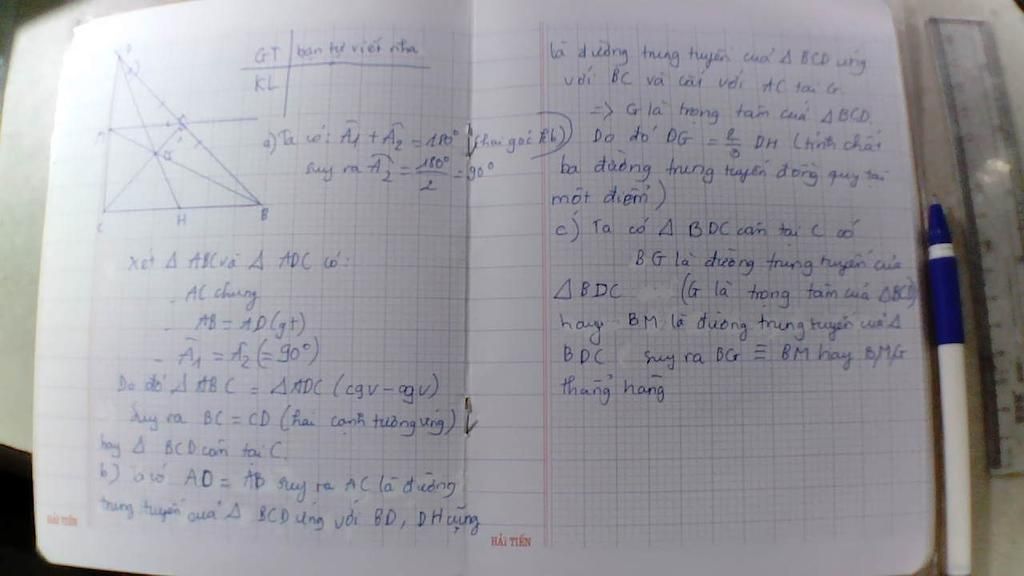 GT bạn tự viết nha
KL
a) Ta có: Â1 + Â2 = 180° (hai góc kb)
suy ra Â2 = 180°/2 = 90°
D
M
A
G
C
H
B
Xét Δ ABC và Δ ADC có:
- AC chung
- AB = AD (gt)
- Â1 = Â2 (= 90°)
Do đó Δ ABC = Δ ADC (cgv - cgv)
Suy ra BC = CD (hai cạnh tương ứng)
hay Δ BCD cân tại C.
b) có AD = AB suy ra AC là đường
trung tuyến của Δ BCD ứng với BD, DH cũng
HẢI TIẾN
là đường trung tuyến của Δ BCD ứng
với BC và cắt với AC tại G.
=> G là trọng tâm của Δ BCD.
Do đó DG = 2/3 DH (tính chất
ba đường trung tuyến đồng quy tại
một điểm)
c) Ta có Δ BDC cân tại C có
BG là đường trung tuyến của
Δ BDC (G là trọng tâm của Δ BCD)
hay BM là đường trung tuyến của Δ
BDC suy ra BG ≡ BM hay BMG
thẳng hàng
HẢI TIẾN